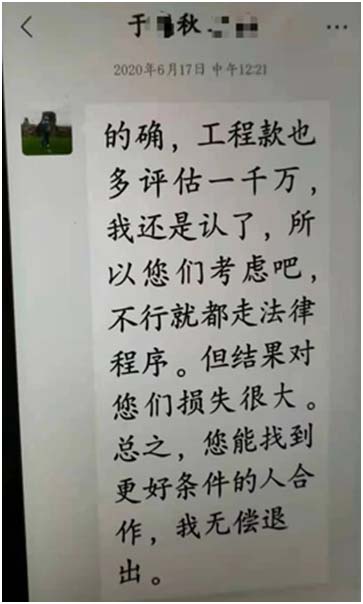 于 秋
2020年6月17日 中午12:21
的确，工程款也
多评估一千万，
我还是认了，所
以您们考虑吧，
不行就都走法律
程序。但结果对
您们损失很大。
总之，您能找到
更好条件的人合
作，我无偿退
出。